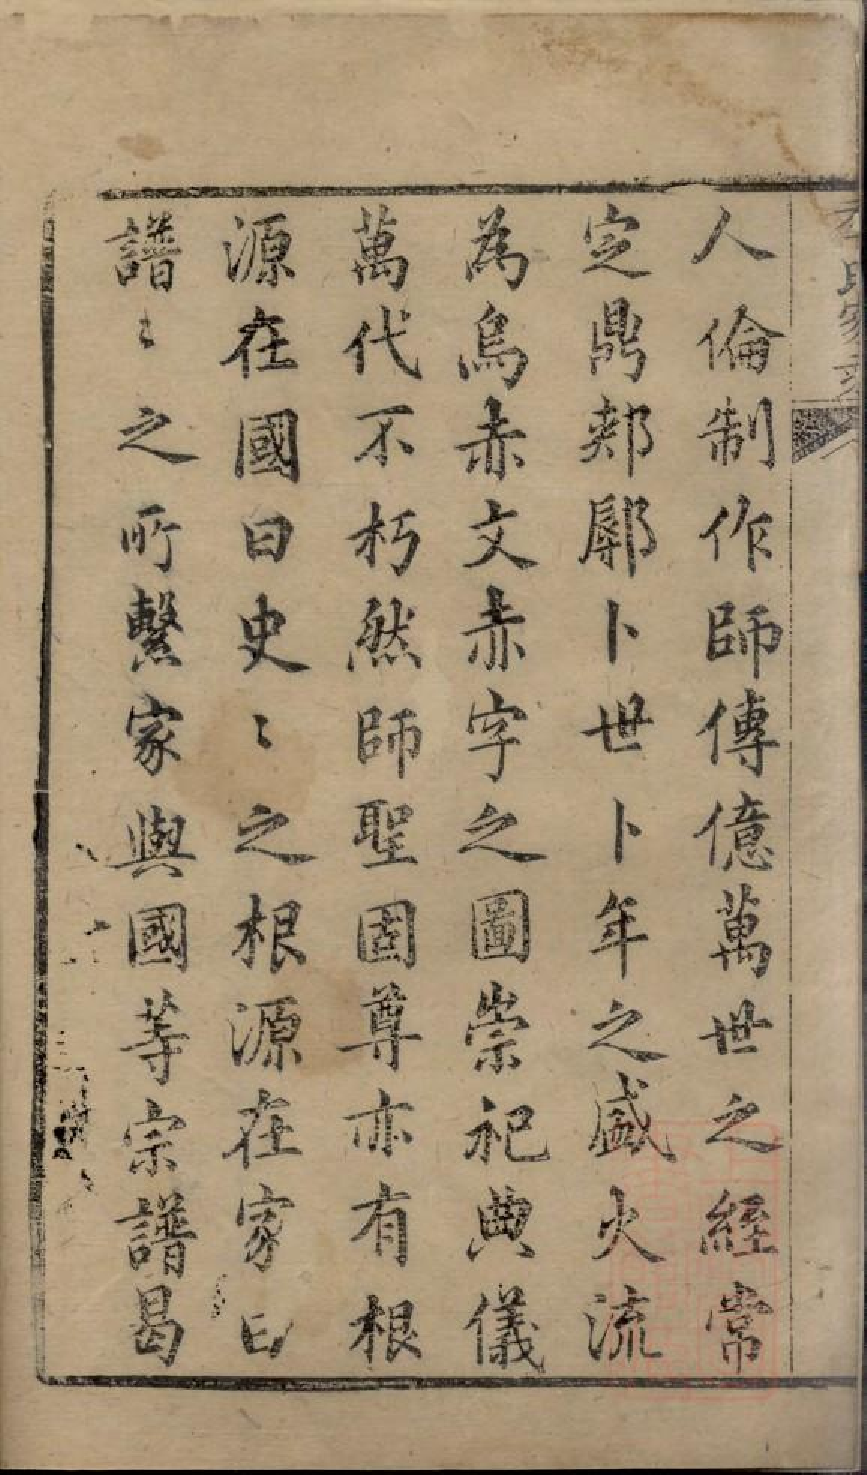 人倫制作師傳億萬世之經常
定鼎郟鄏卜世卜年之盛火流
為烏赤文赤字之圖崇祀典儀
萬代不朽然師聖固尊亦有根
源在國曰史〻之根源在家曰
譜〻之所繫家與國等宗譜曷